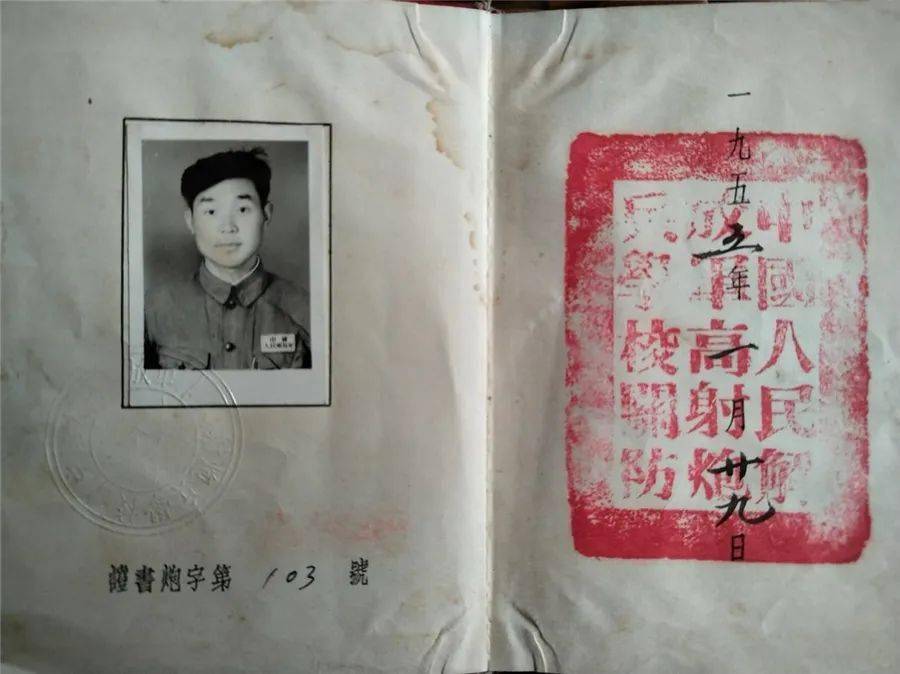 中國
人民解放軍
證書炮字第 103 號
一九五五年一月廿九日
中國人民解
放軍高射炮
兵學校關防